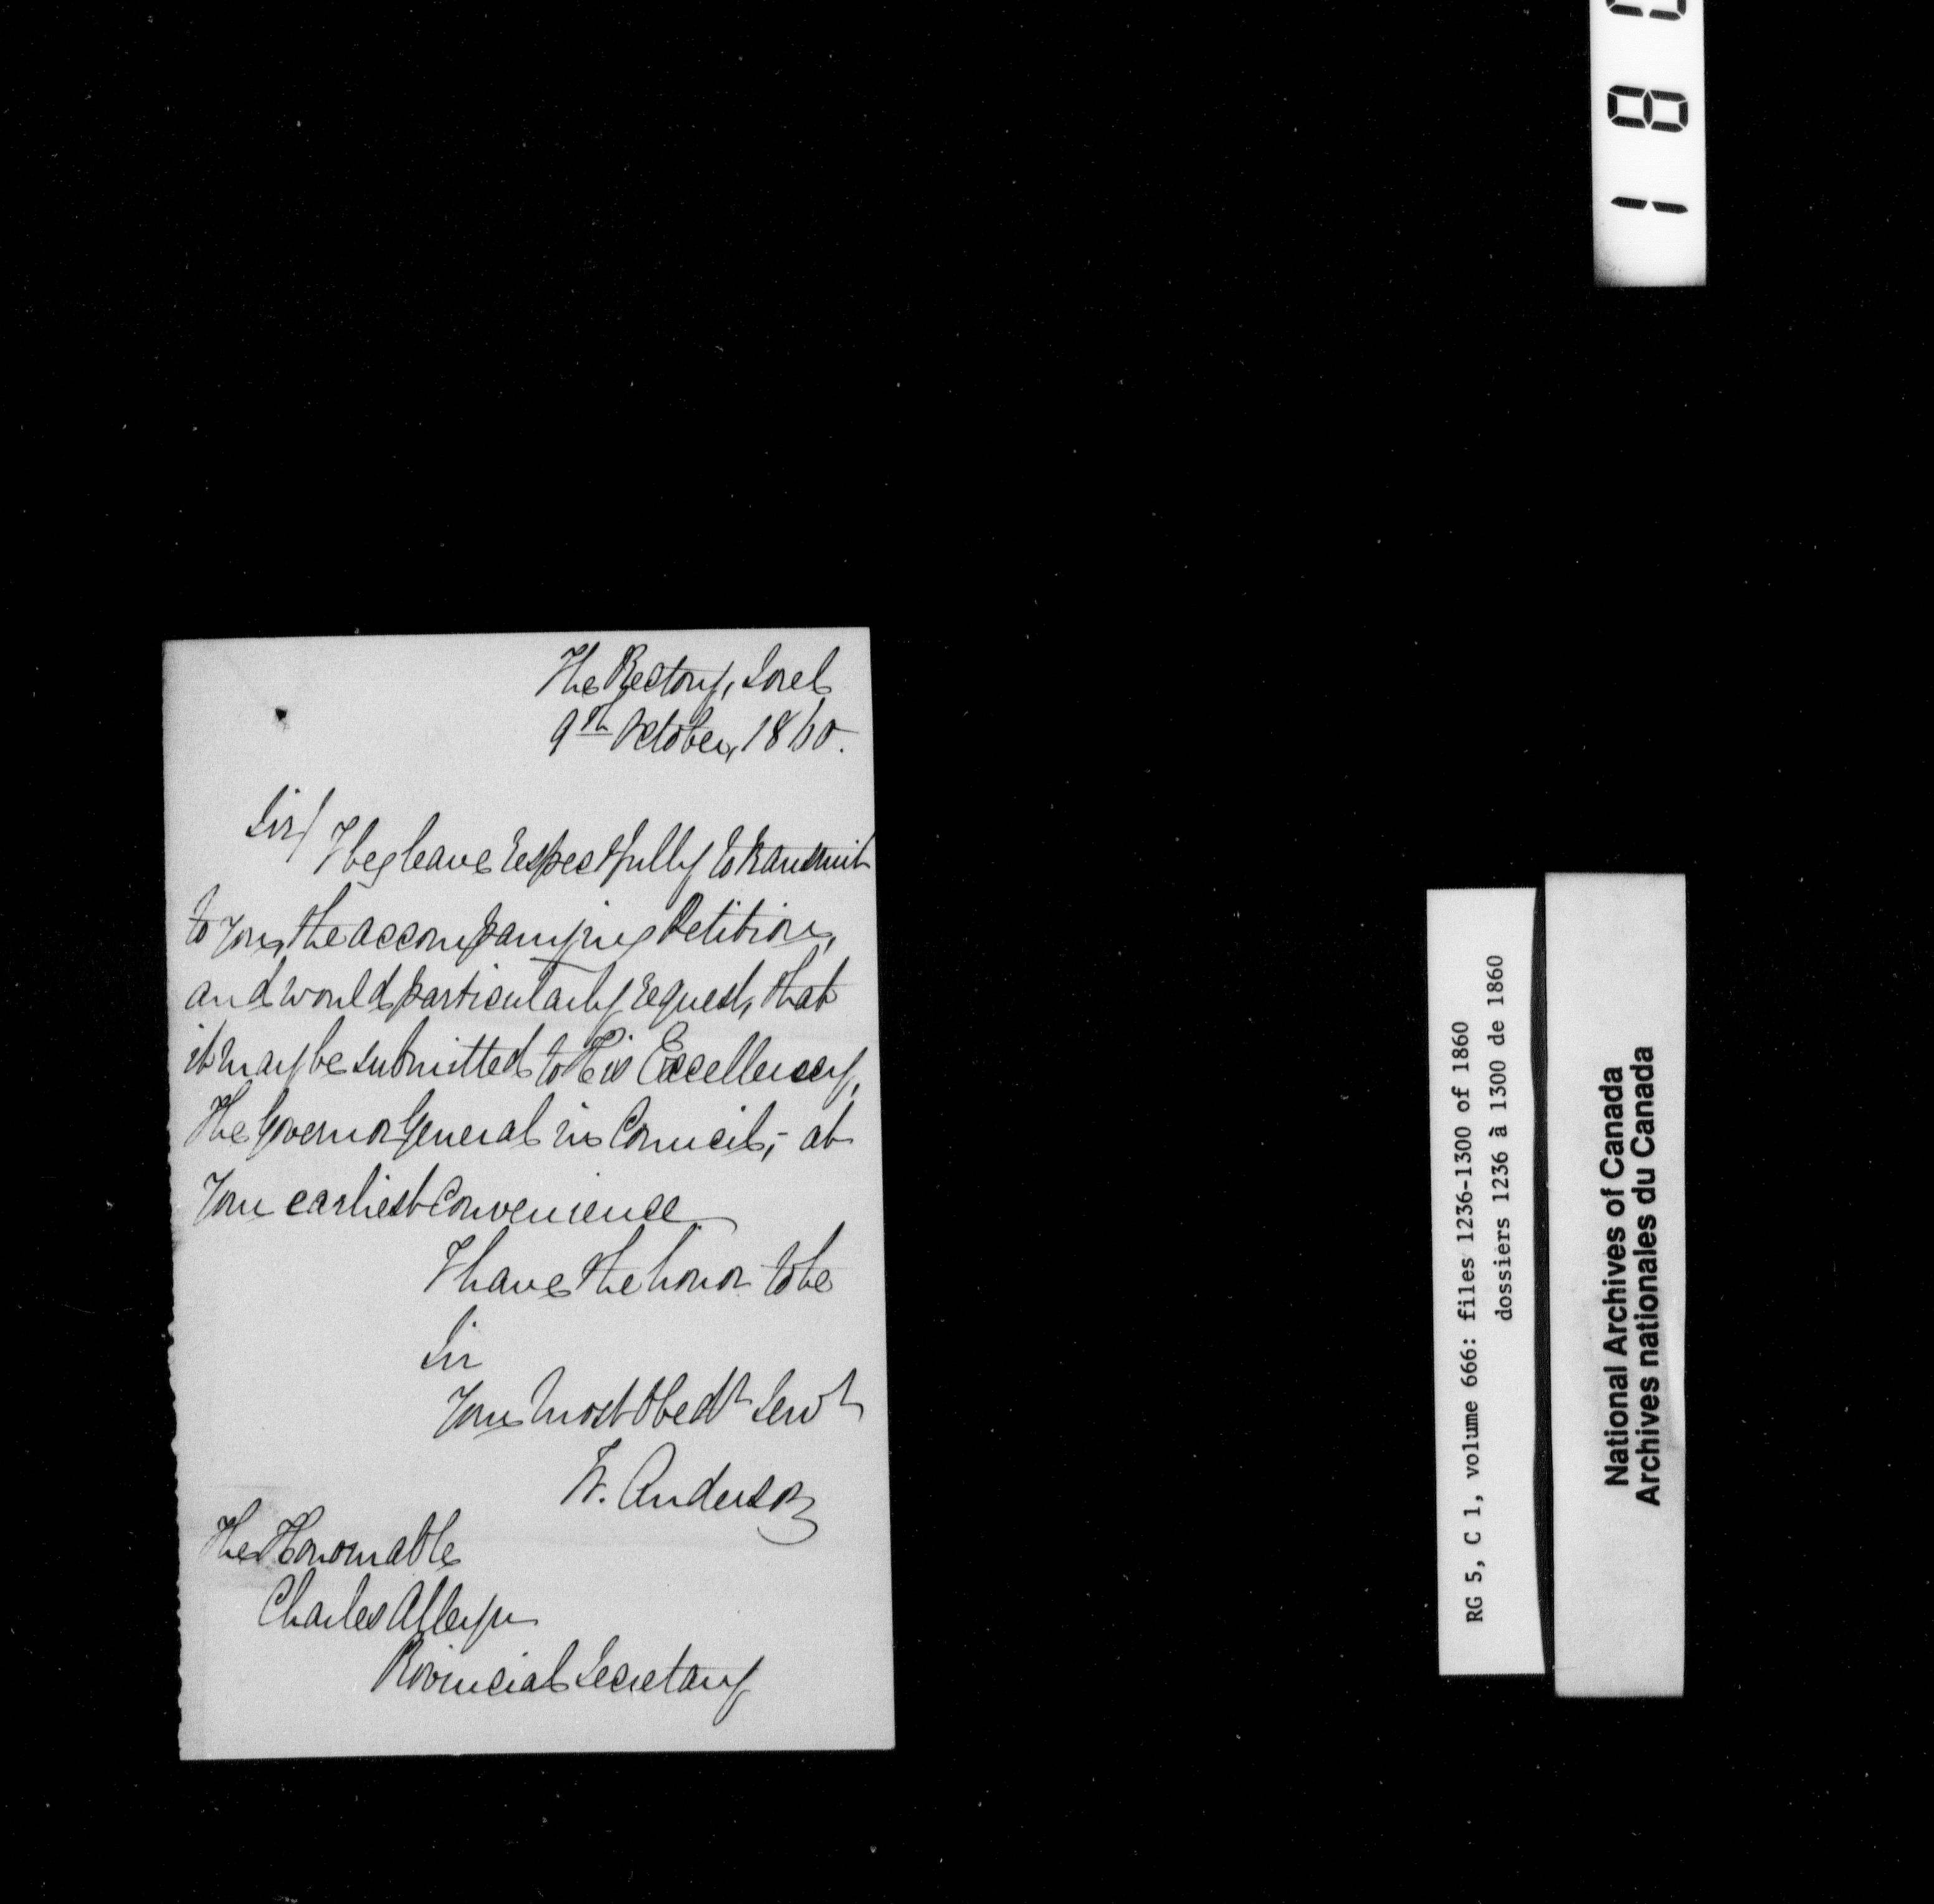 The Rectory, Sorel
9th October, 1860.
Sir/
I beg leave respectfully to transmit
to you, the accompanying Petition,
and would particularly request, that
it may be submitted to His Excellency,
The Governor General in Council,- at
Your earliest Convenience
I have the honor to be
Sir
Your most Obedt Servt
W. Anderson
The Honourable
Charles Alleyn
Provincial Secretary
RG 5, C 1, volume 666: files 1236-1300 of 1860
dossiers 1236 à 1300 de 1860
National Archives of Canada
Archives nationales du Canada
1 8